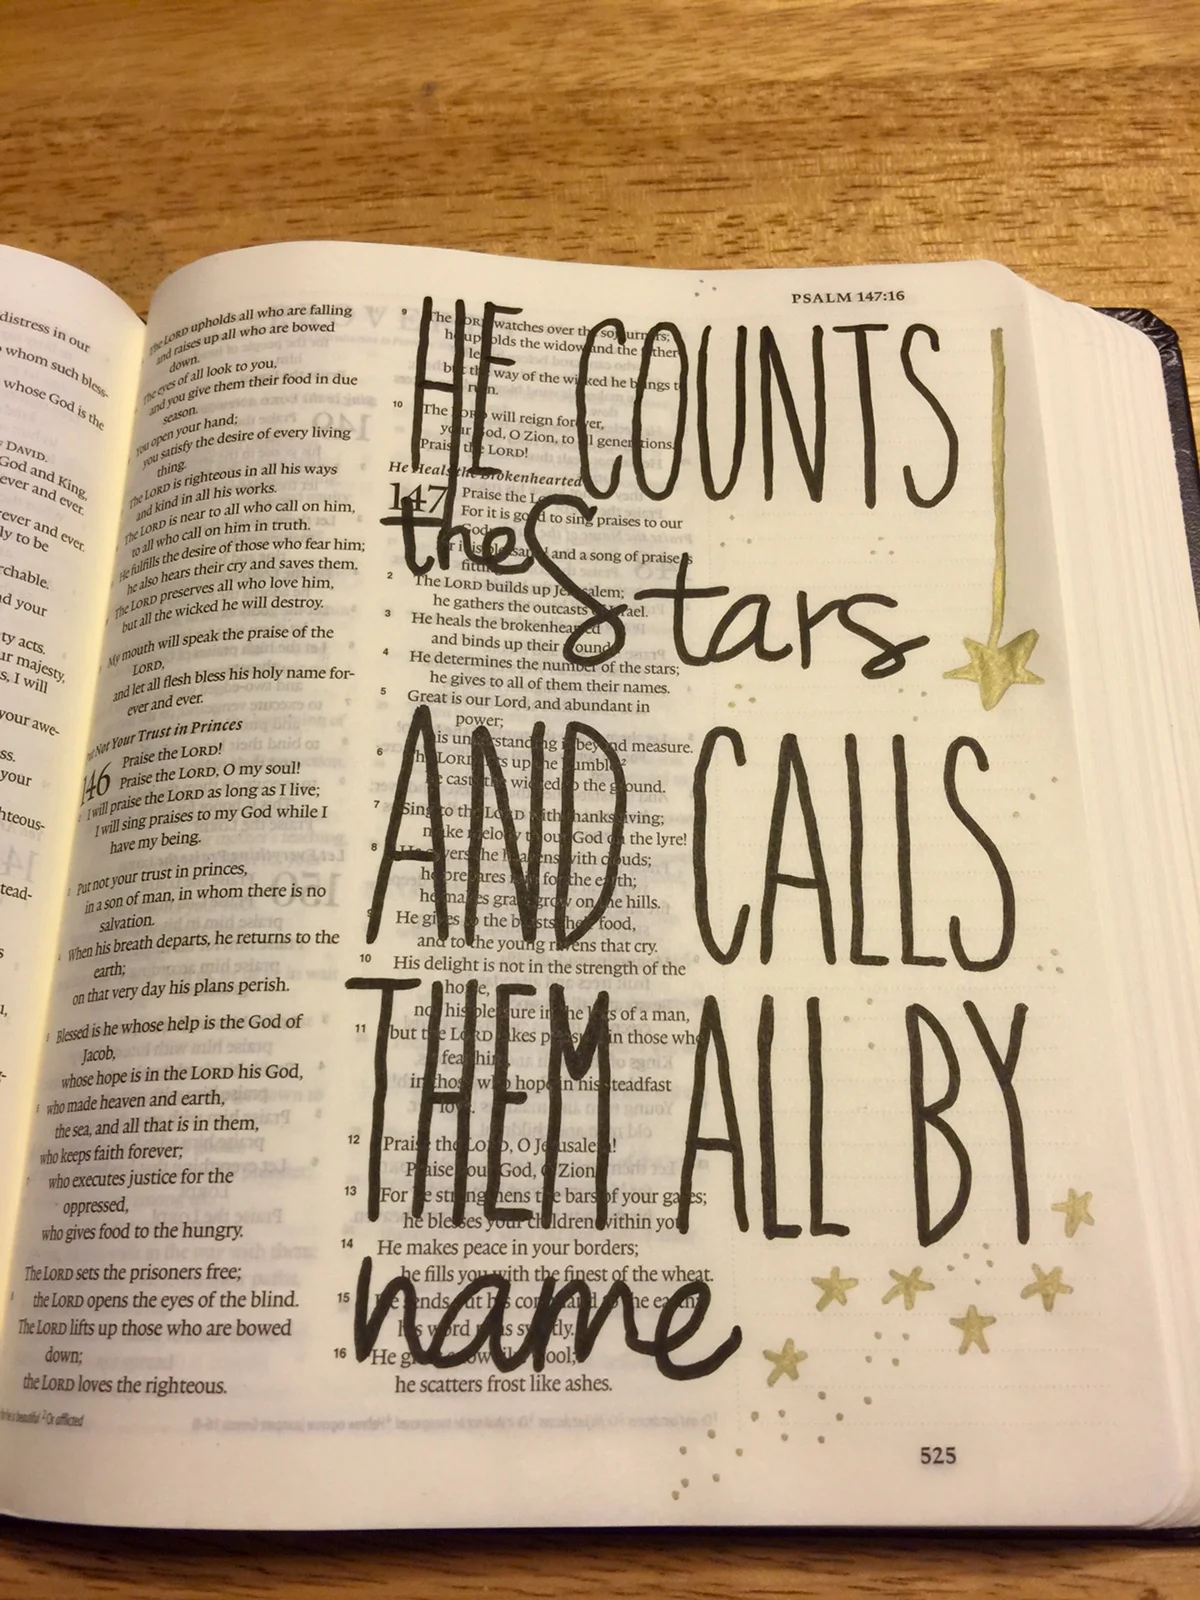 distress in our
whom such bless-
whose God is the
DAVID.
God and King,
ever and ever.
ever and ever.
ly to be
rchable.
nd your
ty acts.
ur majesty,
s, I will
your awe-
ss.
your
hteous-
tead-
The LORD upholds all who are falling
and raises up all who are bowed
down.
The eyes of all look to you,
and you give them their food in due
season.
You open your hand;
you satisfy the desire of every living
thing.
The LORD is righteous in all his ways
and kind in all his works.
The LORD is near to all who call on him,
to all who call on him in truth.
He fulfills the desire of those who fear him;
he also hears their cry and saves them.
The LORD preserves all who love him,
but all the wicked he will destroy.
My mouth will speak the praise of the
LORD,
and let all flesh bless his holy name for-
ever and ever.
Not Your Trust in Princes
146 Praise the LORD!
Praise the LORD, O my soul!
I will praise the LORD as long as I live;
I will sing praises to my God while I
have my being.
Put not your trust in princes,
in a son of man, in whom there is no
salvation.
When his breath departs, he returns to the
earth;
on that very day his plans perish.
Blessed is he whose help is the God of
Jacob,
whose hope is in the LORD his God,
who made heaven and earth,
the sea, and all that is in them,
who keeps faith forever;
who executes justice for the
oppressed,
who gives food to the hungry.
The LORD sets the prisoners free;
the LORD opens the eyes of the blind.
The LORD lifts up those who are bowed
down;
the LORD loves the righteous.
Or afflicted
PSALM 147:16
HE COUNTS
the Stars
AND CALLS
THEM ALL BY
name
9 The LORD watches over the sojourners;
he upholds the widow and the father-
but the way of the wicked he brings to
ruin.
10 The LORD will reign forever,
your God, O Zion, to all generations.
Praise the LORD!
He Heals the Brokenhearted
147 Praise the LORD!
For it is good to sing praises to our
God;
for it is pleasant, and a song of praise is
fitting.
2 The LORD builds up Jerusalem;
he gathers the outcasts of Israel.
3 He heals the brokenhearted
and binds up their wounds.
4 He determines the number of the stars;
he gives to all of them their names.
5 Great is our Lord, and abundant in
power;
his understanding is beyond measure.
6 The LORD lifts up the humble;2
he casts the wicked to the ground.
7 Sing to the LORD with thanksgiving;
make melody to our God on the lyre!
8 He covers the heavens with clouds;
he prepares rain for the earth;
he makes grass grow on the hills.
9 He gives to the beasts their food,
and to the young ravens that cry.
10 His delight is not in the strength of the
horse,
nor his pleasure in the legs of a man,
11 but the LORD takes pleasure in those who
fear him,
in those who hope in his steadfast
love.
12 Praise the LORD, O Jerusalem!
Praise your God, O Zion!
13 For he strengthens the bars of your gates;
he blesses your children within you.
14 He makes peace in your borders;
he fills you with the finest of the wheat.
15 He sends out his command to the earth;
his word runs swiftly.
16 He gives snow like wool;
he scatters frost like ashes.
525